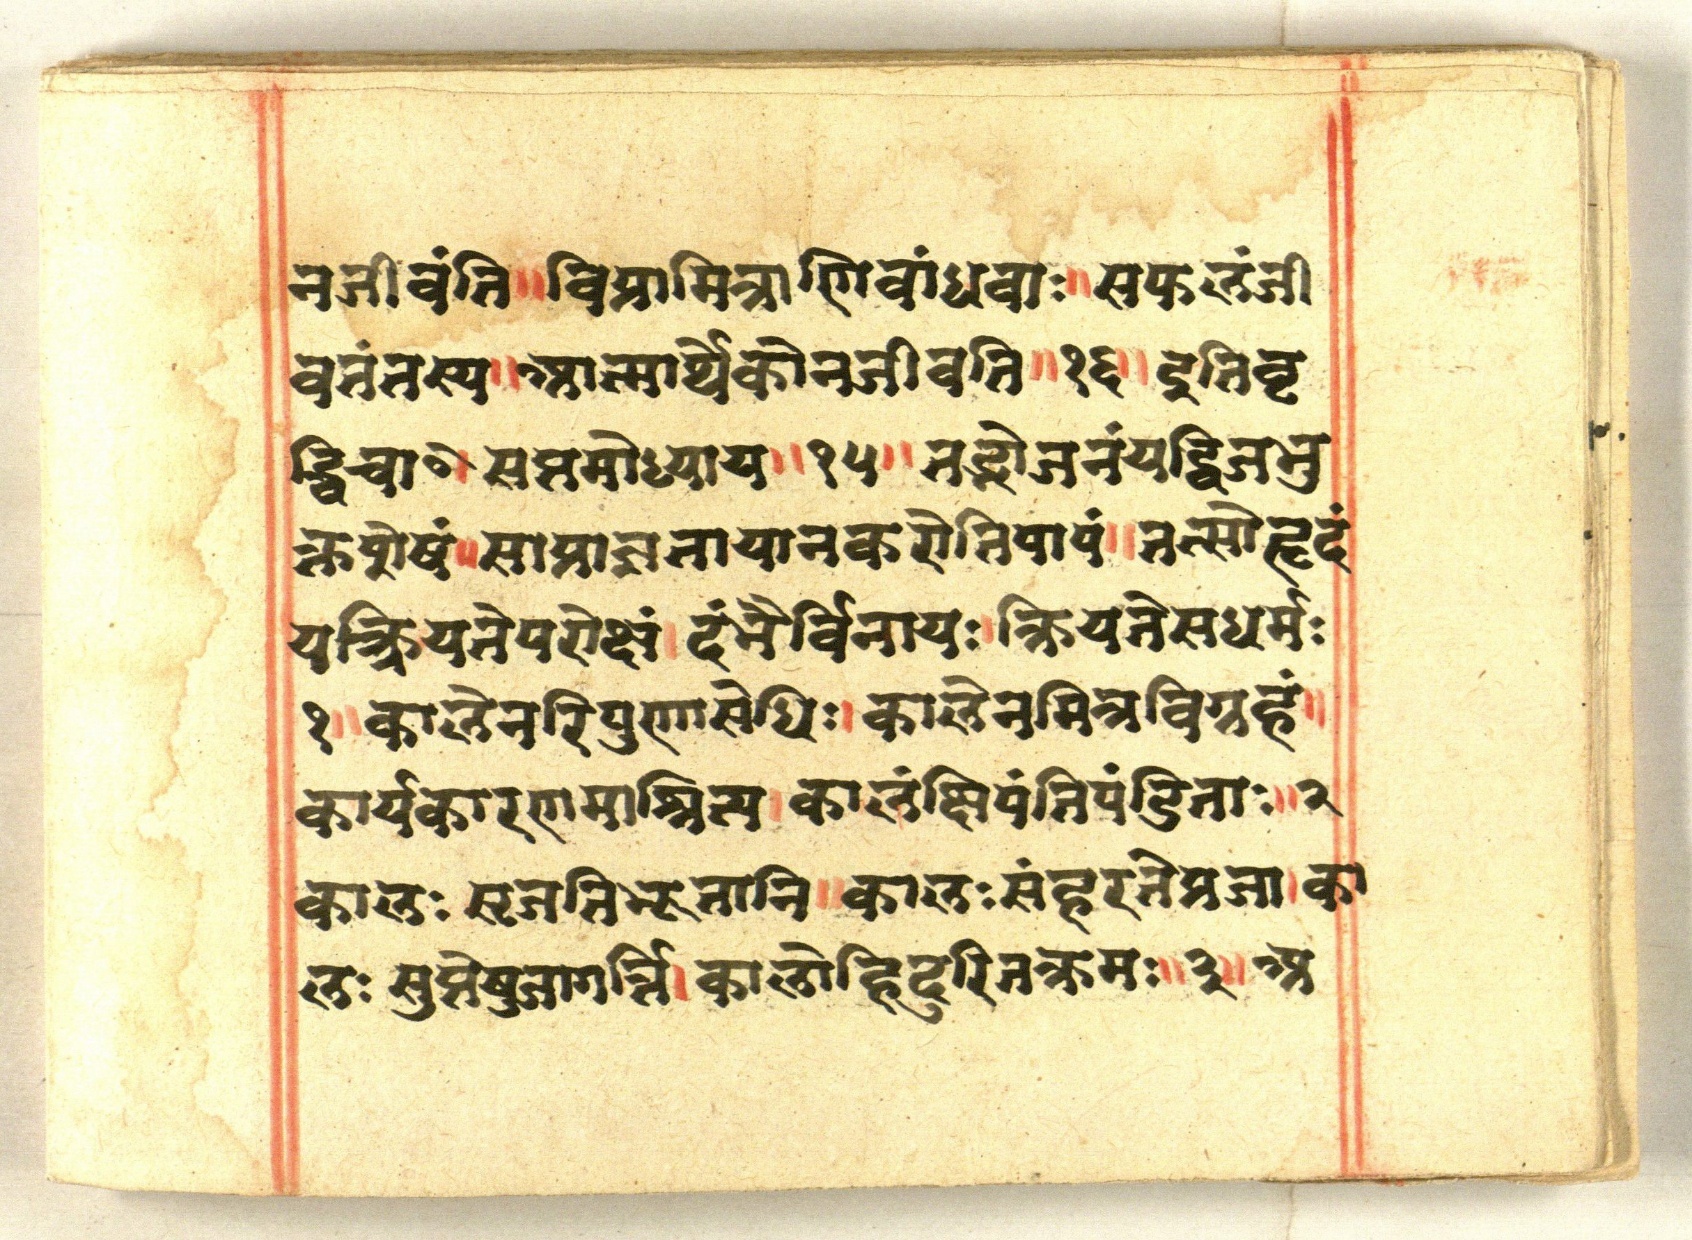 नजीवंति॥ विप्रामित्राणिवांधवाः॥ सफलंजी
वतंतस्य॥ आत्मार्थेकोनजीवति॥१६॥ इतिवृ
द्धिचा॰। सप्तमोध्याय॥१५॥ तद्भोजनंयद्विजभु
क्तषोषं॥ साप्राज्ञतायानकरोतिपापं॥ तत्सौहृदं
यत्क्रियतेपरोक्षं। दंभैर्विनायः। क्रियतेसधर्मः
१॥ कालेनरिपुणासंधिः। कालेनमित्रविग्रहं॥
कार्यकारणमाश्रित्य। कालंक्षिपंतिपंडिताः॥२
कालः सृजतिभूतानि॥ कालःसंहरतेप्रजा। का
लः सुप्तेषुजागर्त्ति। कालोहिदुरितक्रमः॥३॥ अ